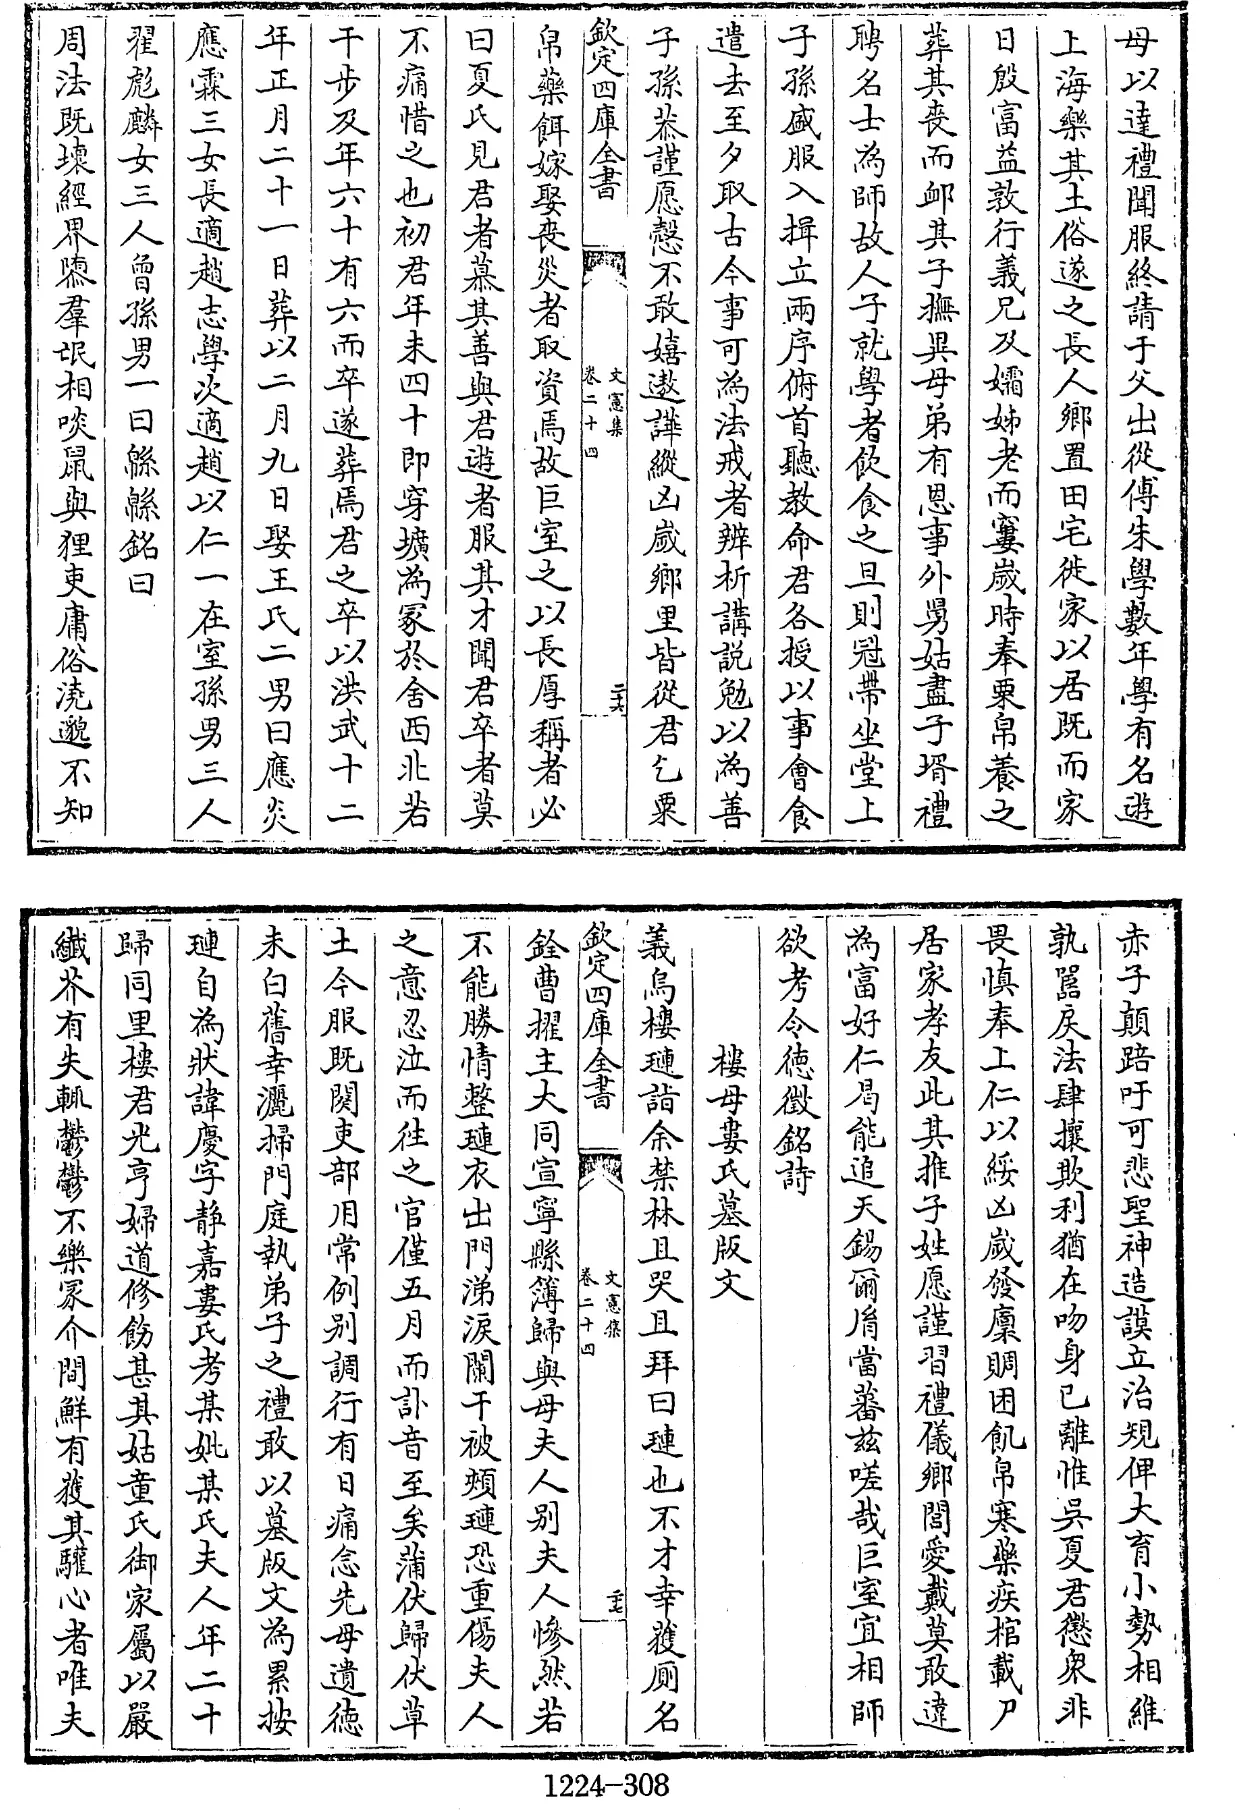 母以達禮聞服終請于父出從傅朱學數年學有名遊
上海樂其土俗遂之長人鄉置田宅徙家以居既而家
日殷富益敦行義兄及孀姊老而窶歲時奉粟帛養之
葬其喪而䘏其子撫異母弟有恩事外舅姑盡子壻禮
聘名士為師故人子就學者飲食之旦則冠帶坐堂上
子孫盛服入揖立兩序俯首聽教命君各授以事會食
遣去至夕取古今事可為法戒者辨析講説勉以為善
子孫恭謹愿慤不敢嬉遨譁縱凶歲鄉里皆從君乞粟
欽定四庫全書
文憲集
卷二十四
二十六
帛藥餌嫁娶喪災者取資焉故巨室之以長厚稱者必
曰夏氏見君者慕其善與君遊者服其才聞君卒者莫
不痛惜之也初君年未四十即穿壙為冢於舍西北若
干步及年六十有六而卒遂葬焉君之卒以洪武十二
年正月二十一日葬以二月九日娶王氏二男曰應炎
應霖三女長適趙志學次適趙以仁一在室孫男三人
翟彪麟女三人曾孫男一曰緜緜銘曰
周法既壞經界隳羣氓相啖鼠與狸吏庸俗澆邈不知
赤子顛踣吁可悲聖神造謨立治規俾大育小勢相維
孰嚚戾法肆攘欺利猶在吻身已離惟吳夏君懲衆非
畏慎奉上仁以綏凶歲發廩賙困飢帛寒藥疾棺載尸
居家孝友此其推子姓愿謹習禮儀鄉閭愛戴莫敢違
為富好仁曷能追天錫爾胤當蕃兹嗟哉巨室宜相師
欲考令徳徵銘詩
樓母婁氏墓版文
義烏樓璉詣余禁林且哭且拜曰璉也不才幸獲厠名
欽定四庫全書
文憲集
卷二十四
二十七
銓曹擢主大同宣寧縣簿歸與母夫人别夫人慘然若
不能勝情整璉衣出門涕淚闌干被頰璉恐重傷夫人
之意忍泣而往之官僅五月而訃音至矣蒲伏歸伏草
土今服既闋吏部用常例别調行有日痛念先母遺徳
未白舊幸灑掃門庭執弟子之禮敢以墓版文為累按
璉自為狀諱慶字靜嘉婁氏考某妣某氏夫人年二十
歸同里樓君光亨婦道修飭甚其姑童氏御家屬以嚴
纎芥有失輒鬱鬱不樂冢介間鮮有獲其驩心者唯夫
1224-308